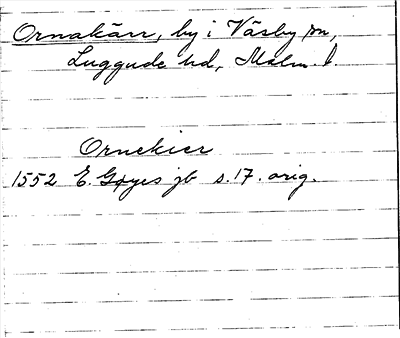 Ornakärr, by i Väsby sn,
Luggude hd, Malm. l.
Ornekier
1552 E. Gøyes jb s. 17. orig.